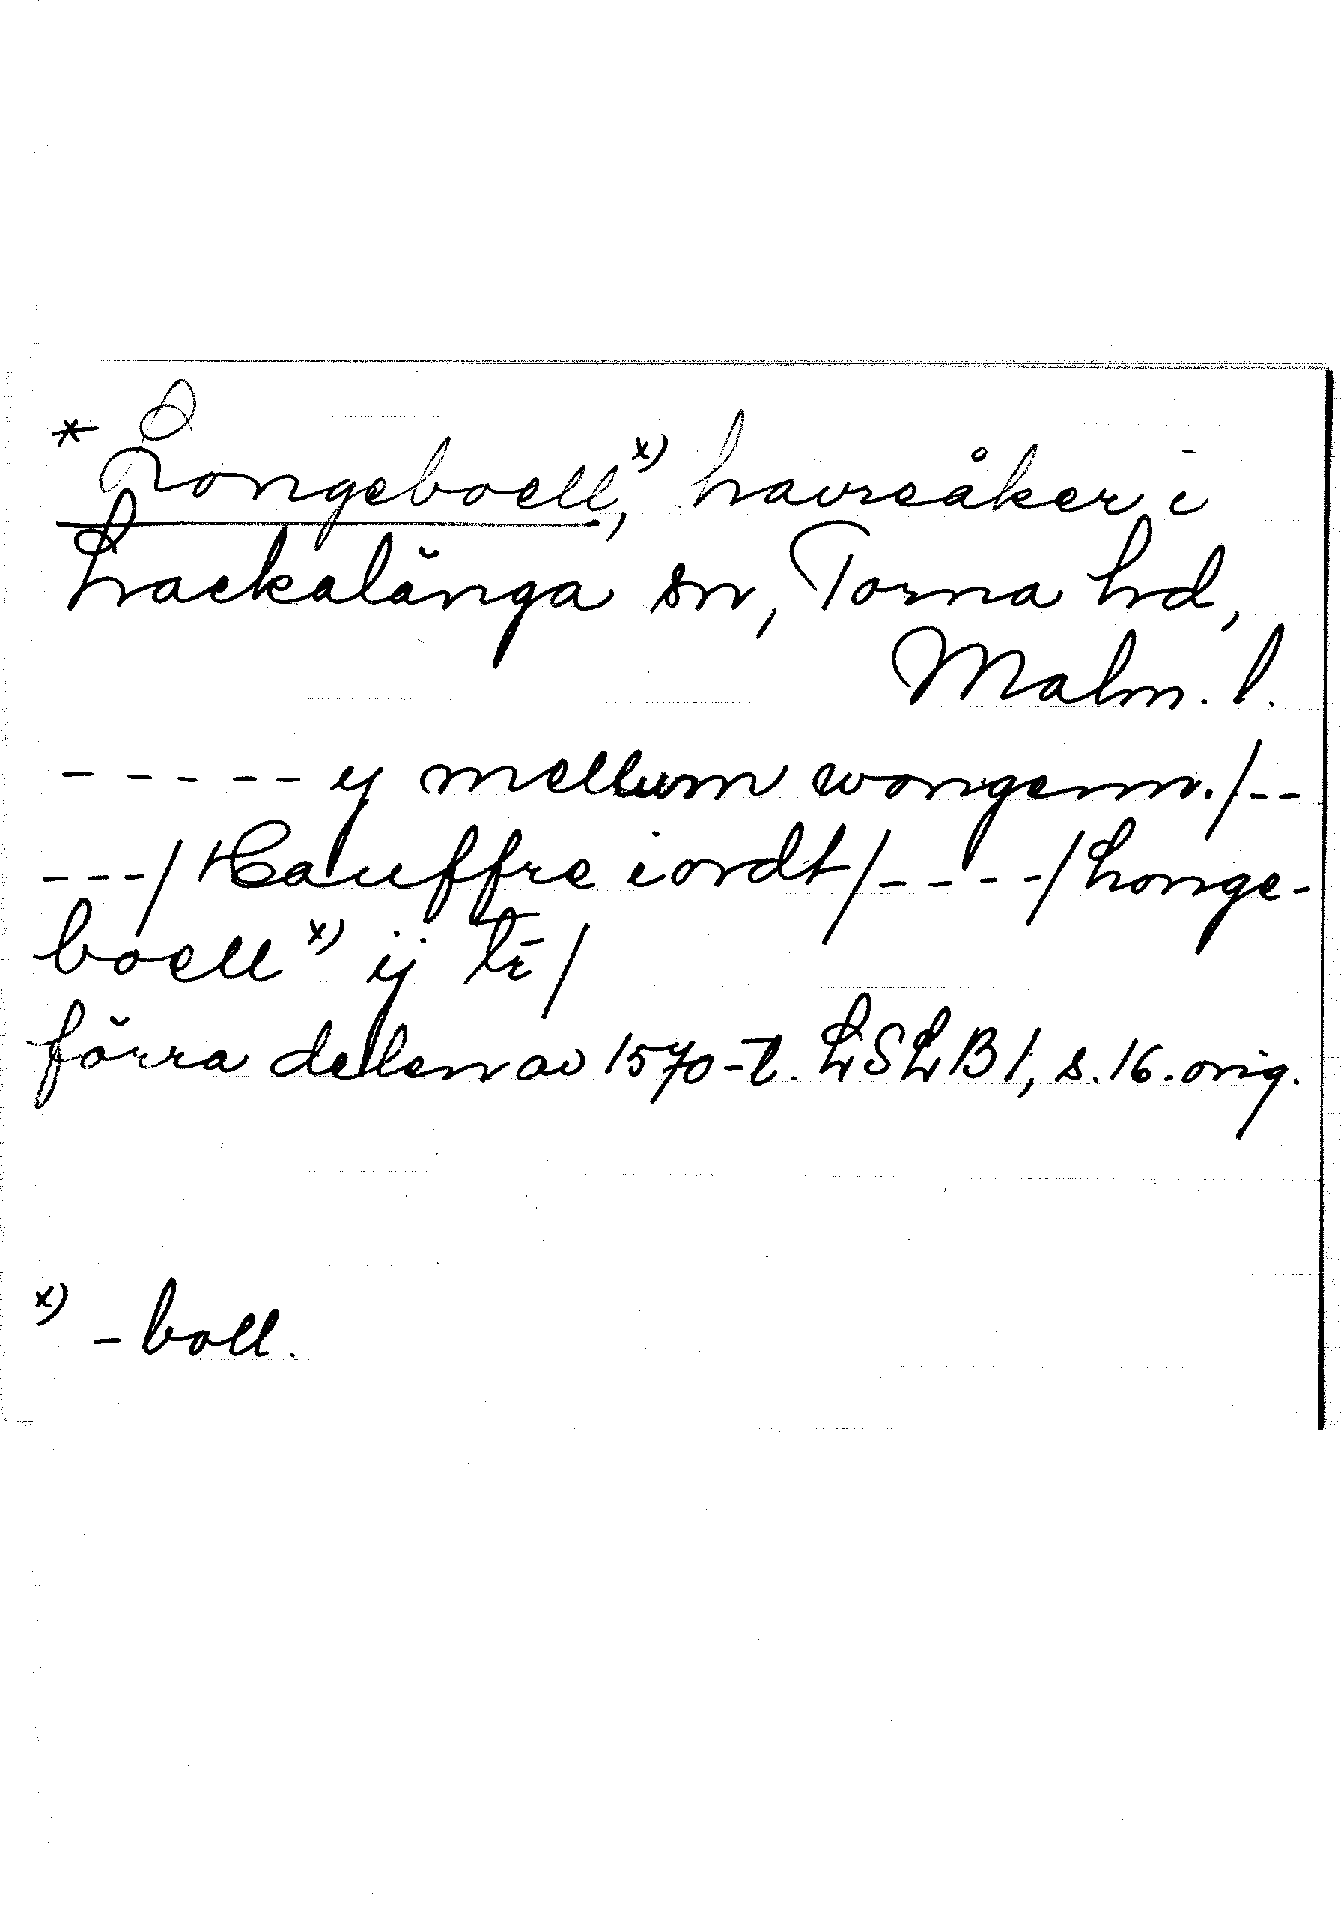 * Longeboell,x) havreåker i
Lackalänga sn, Torna hd,
Malm. l.
- - - - - y mellum wongenn./--
---/ Hauffre iordt/----/Longe-
boell x) ij tr̄/
förra delen av 1570-t. LSLB 1, s. 16. orig.
x) - boll.